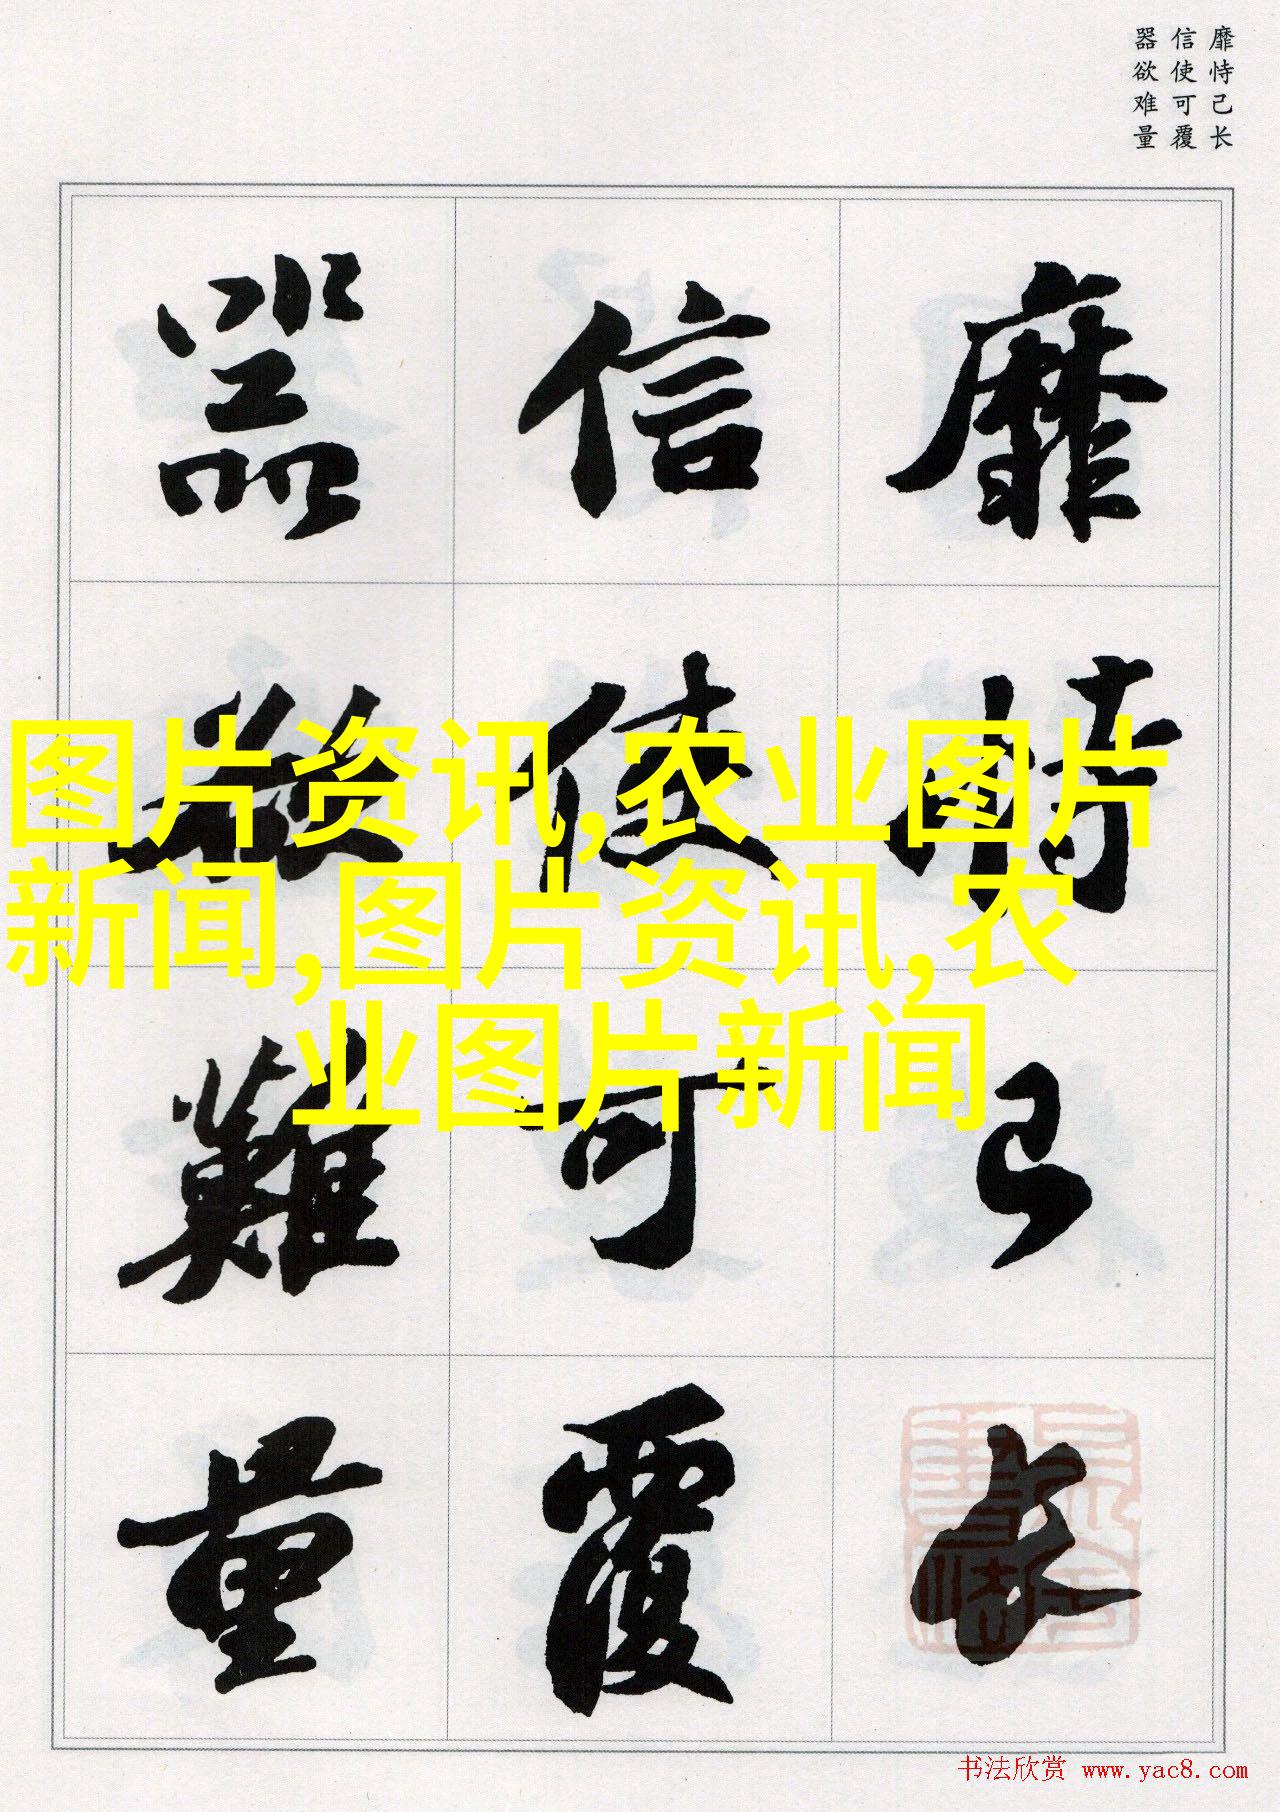 靡恃己长
信使可覆
器欲难量
靡恃己长
信使可覆
器欲難量
图片资讯,农业图片
新闻,图片资讯,农
业图片新闻
书法欣赏 www.yac8.com